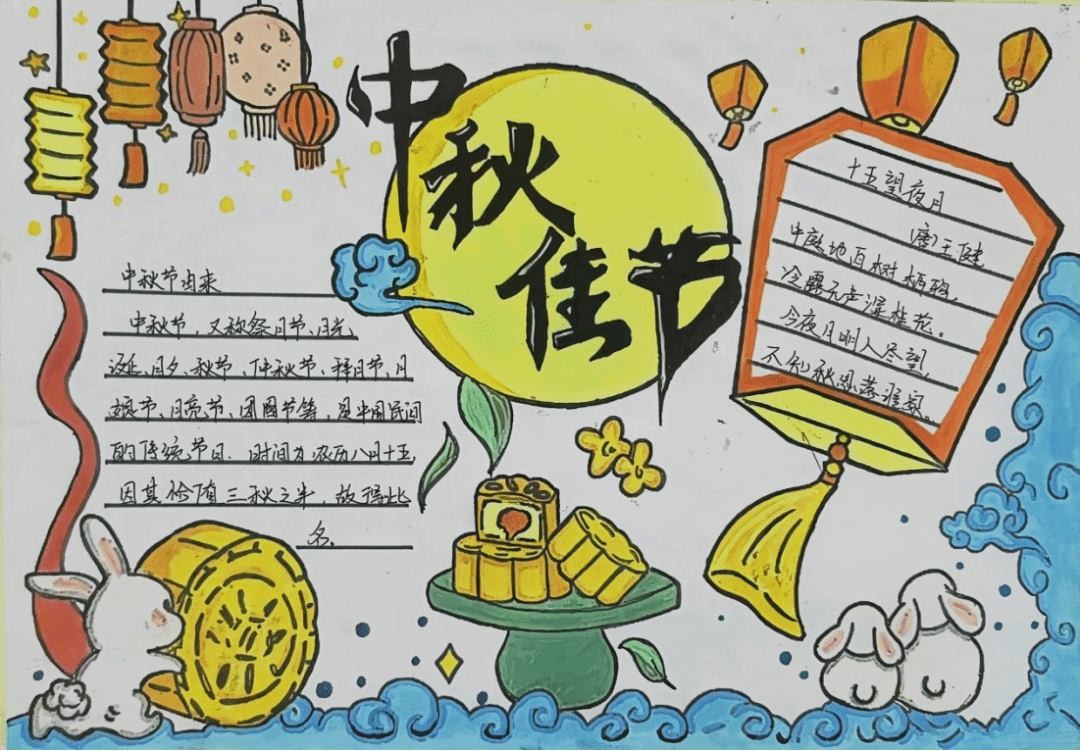 中秋佳节
中秋节由来
中秋节,又称祭月节、月光
诞、月夕、秋节、仲秋节、拜月节、月
娘节、月亮节、团圆节等,是中国民间
的传统节日.时间为农历八月十五,
因其恰值三秋之半,故得此
名、
十五望夜月
唐)王健
中庭地白树栖鸦,
冷露无声湿桂花。
今夜月明人尽望,
不知秋思落谁家。